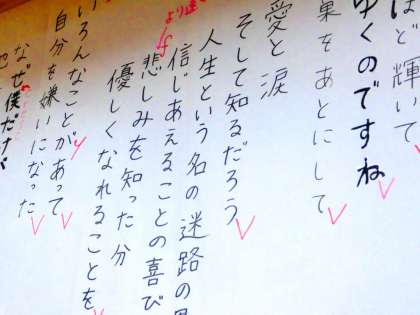 ほど輝いて
ゆくのですね
巣をあとにして
愛と涙
そして知るだろう
人生という名の迷路の
より速く
f
信じあえることの喜び
悲しみを知った分
優しくなれることを
いろんなことがあって
自分を嫌いになった
なぜ僕だけが